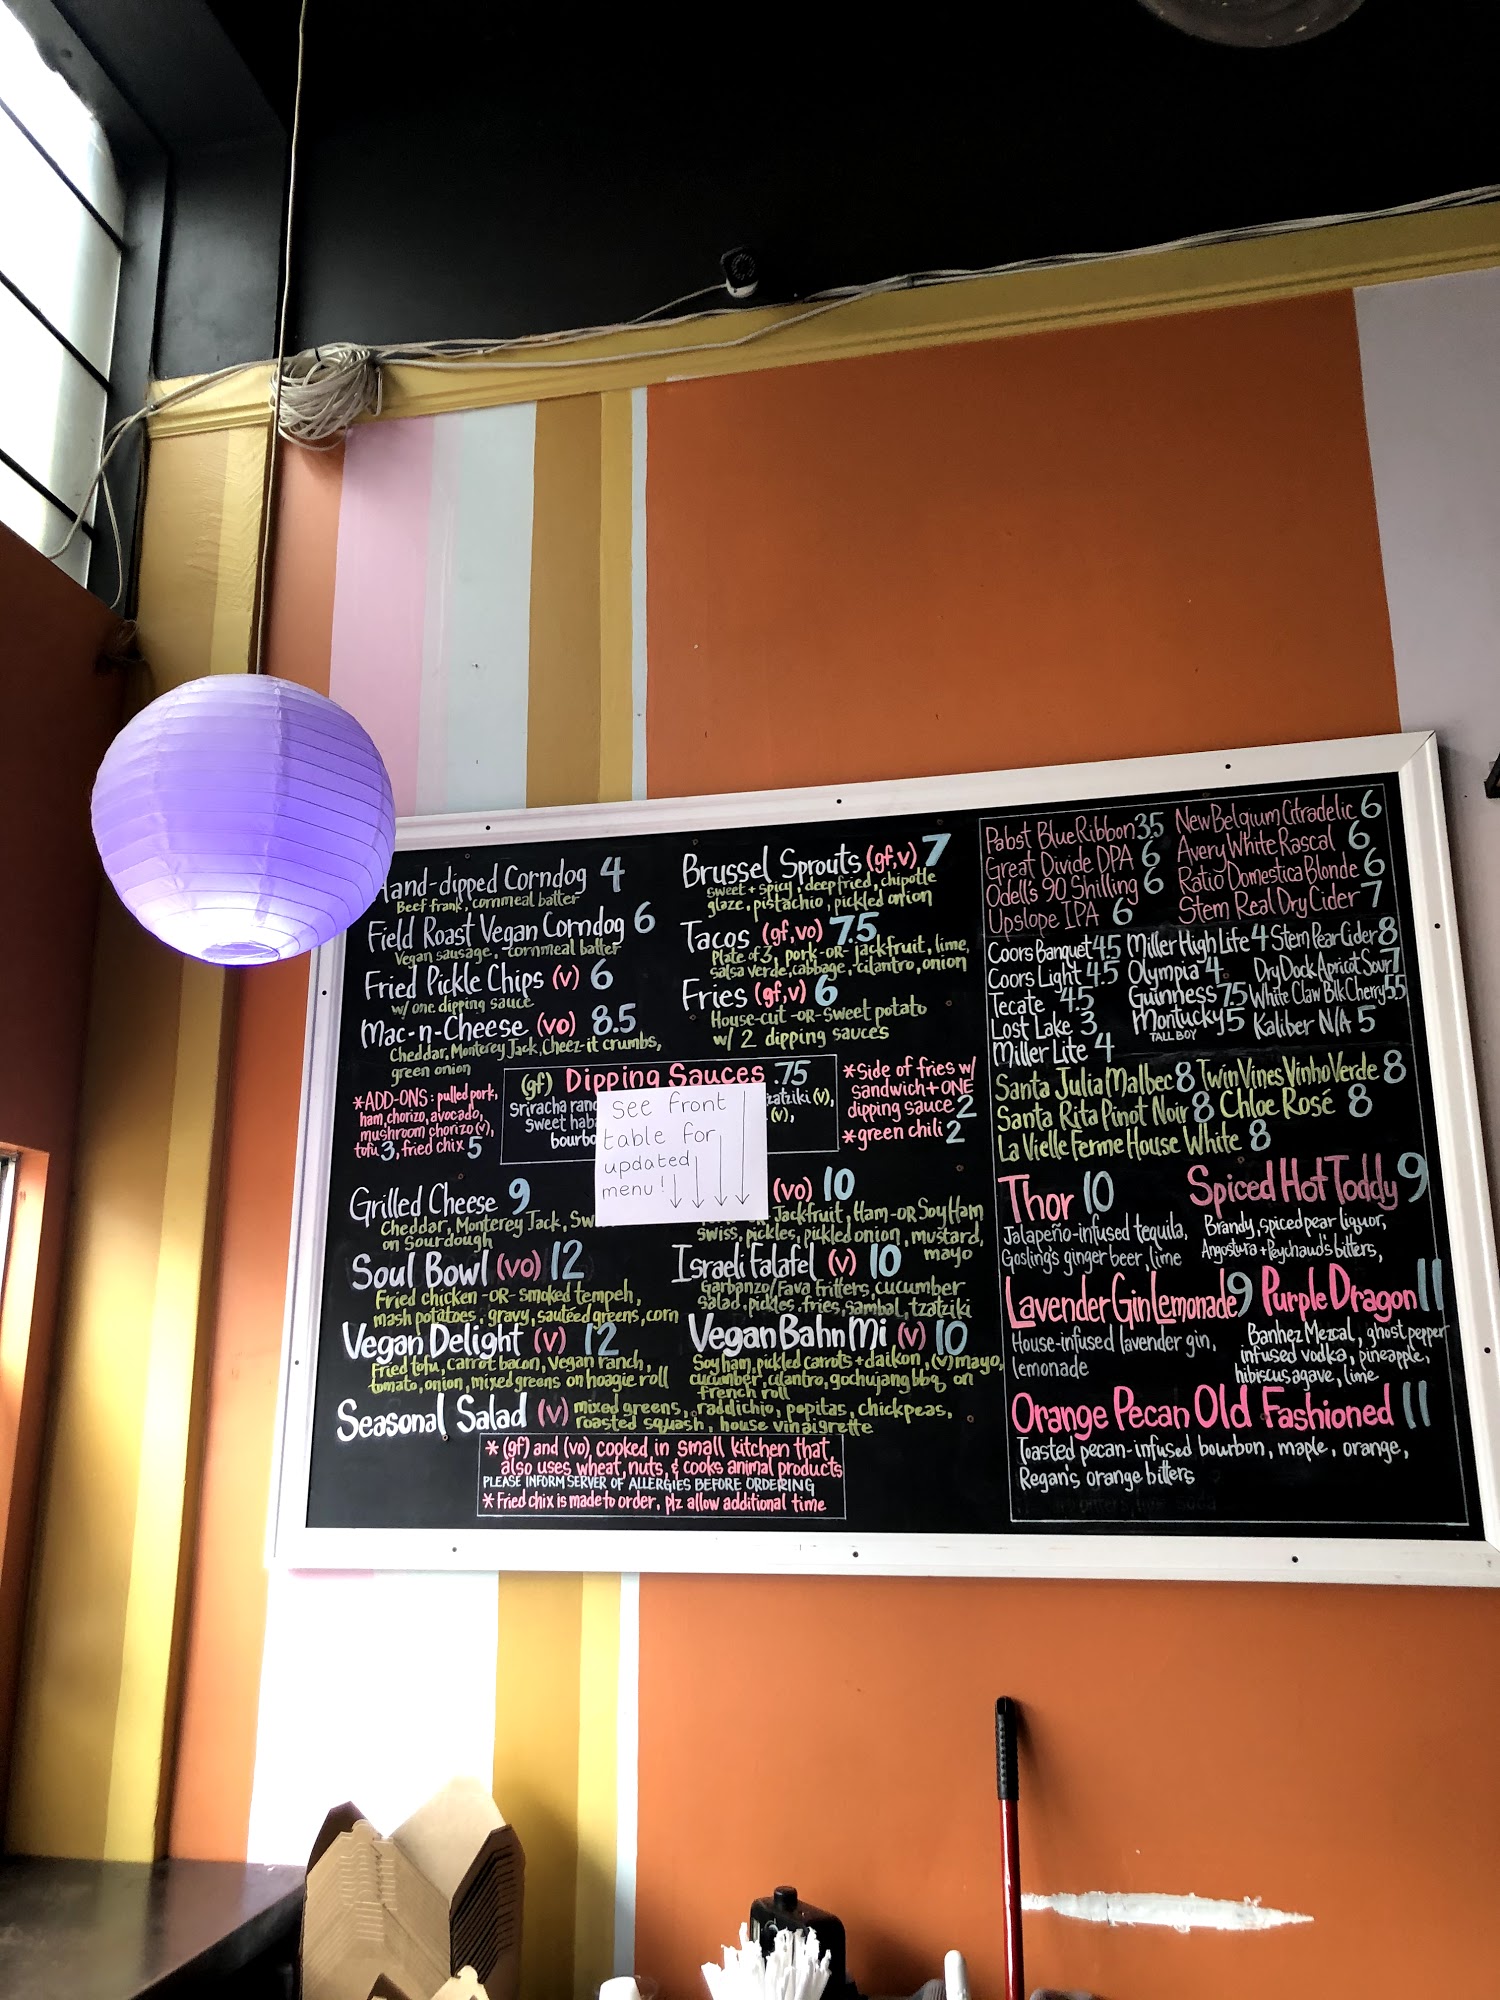 Hand-dipped Corndog 4
Beef frank, cornmeal batter
Field Roast Vegan Corndog 6
Vegan sausage, cornmeal batter
Fried Pickle Chips (v) 6
w/ one dipping sauce
Mac-n-Cheese (vo) 8.5
Cheddar, Monterey Jack, Cheez-it crumbs,
green onion
*ADD-ONS: pulled pork,
ham, chorizo, avocado,
mushroom chorizo (v),
tofu 3, fried chix 5
Brussel Sprouts (gf,v) 7
sweet + spicy, deep fried, chipotle
glaze, pistachio, pickled onion
Tacos (gf,vo) 7.5
Plate of 3, pork -OR- jackfruit, lime,
salsa verde, cabbage, cilantro, onion
Fries (gf,v) 6
House-cut -OR- sweet potato
w/ 2 dipping sauces
(gf) Dipping Sauces .75
Sriracha
tzatziki (v),
Sweet
(v),
See front
table for
updated
menu!
*Side of fries w/
sandwich + ONE
dipping sauce 2
*green chili 2
Grilled Cheese 9
Cheddar, Monterey Jack,
on Sourdough
Soul Bowl (vo) 12
Fried chicken -OR- smoked tempeh,
mash potatoes, gravy, sautéed greens, corn
Vegan Delight (v) 12
Fried tofu, carrot bacon, vegan ranch,
tomato, onion, mixed greens on hoagie roll
(vo) 10
Jackfruit, Ham -OR Soy Ham
swiss, pickles, pickled onion, mustard,
mayo
Israeli Falafel (v) 10
Garbanzo/Fava fritters, cucumber
salad, pickles, fries, sambal, tzatziki
Vegan Bahn Mi (v) 10
Soy ham, pickled carrots + daikon, (v) mayo,
cucumber, cilantro, gochujang bbq on
French roll
Seasonal Salad (v) mixed greens, raddichio, pepitas, chickpeas,
roasted squash, house vinaigrette
* (gf) and (vo) cooked in small kitchen that
also uses wheat, nuts, & cooks animal products
PLEASE INFORM SERVER OF ALLERGIES BEFORE ORDERING
* Fried chix is made to order, plz allow additional time
Pabst Blue Ribbon 3.5
Great Divide DPA 6
Odell's 90 Shilling 6
Upslope IPA 6
New Belgium Citradelic 6
Avery White Rascal 6
Ratio Domestica Blonde 6
Stem Real Dry Cider 7
Coors Banquet 4.5
Coors Light 4.5
Tecate 4.5
Lost Lake 3
Miller Lite 4
Miller High Life 4
Olympia 4
Guinness 7.5
Montucky 5
TALL BOY
Stem Pear Cider 8
Dry Dock Apricot Sour 7
White Claw Blk Cherry 5.5
Kaliber N/A 5
Santa Julia Malbec 8 Twin Vines Vinho Verde 8
Santa Rita Pinot Noir 8 Chloe Rosé 8
La Vielle Ferme House White 8
Thor 10
Jalapeño-infused tequila,
Gosling's ginger beer, lime
Spiced Hot Toddy 9
Brandy, spiced pear liquor,
Angostura + Peychaud's bitters,
Lavender Gin Lemonade 9
House-infused lavender gin,
lemonade
Purple Dragon 11
Banhez Mezcal, ghost pepper
infused vodka, pineapple,
hibiscus agave, lime
Orange Pecan Old Fashioned 11
Toasted pecan-infused bourbon, maple, orange,
Regan's orange bitters